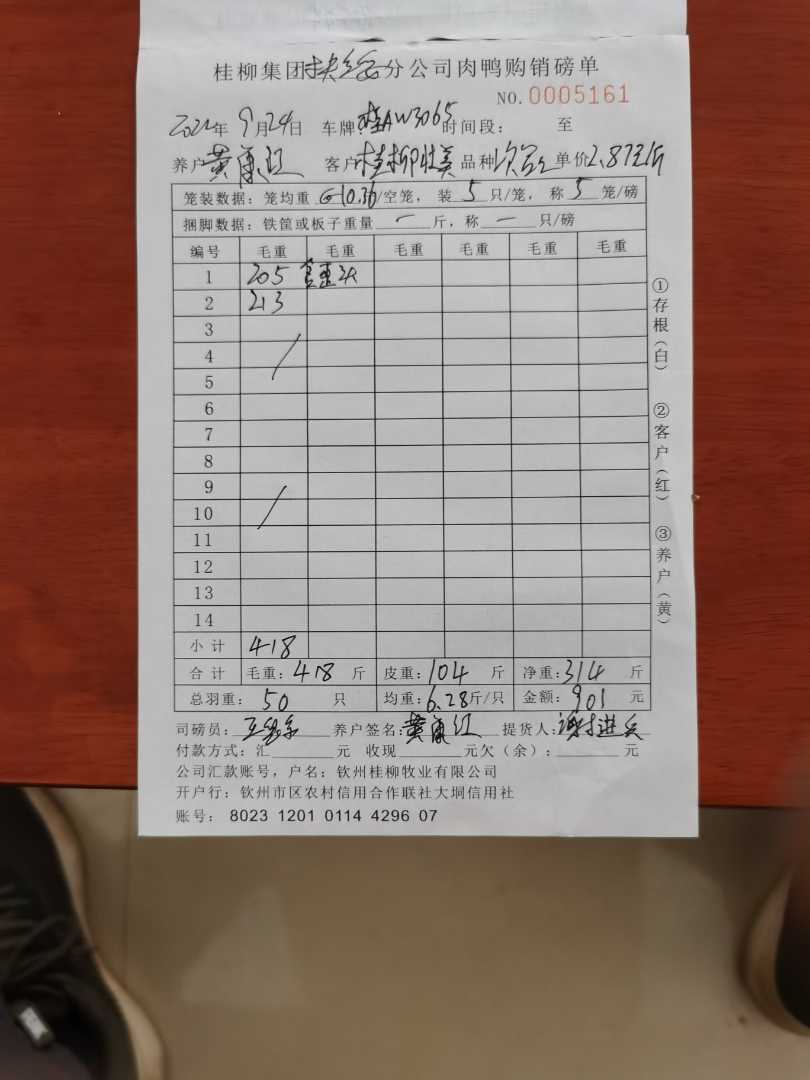 桂柳集团扶绥分公司肉鸭购销磅单
NO.0005161
年9月24日 车牌:桂AW3065时间段: 至
养户黄康江 客户桂柳壮美品种次品单价2.87元/斤
笼装数据:笼均重10.36/空笼,装5只/笼,称5笼/磅
捆脚数据:铁筐或板子重量一斤,称一只/磅
编号 毛重 毛重 毛重 毛重 毛重 毛重
1 205
2 213
3
4
5
6
7
8
9
10
11
12
13
14
小计 418
合计 毛重:418斤 皮重:104斤 净重:314斤
总羽重:50只 均重:6.28斤/只 金额:901元
司磅员: 养户签名:黄康江 提货人:谢进兵
付款方式:汇 元 收现 元欠(余): 元
公司汇款账号,户名:钦州桂柳牧业有限公司
开户行:钦州市区农村信用合作联社大垌信用社
账号: 8023 1201 0114 4296 07
①存根(白) ②客户(红) ③养户(黄)